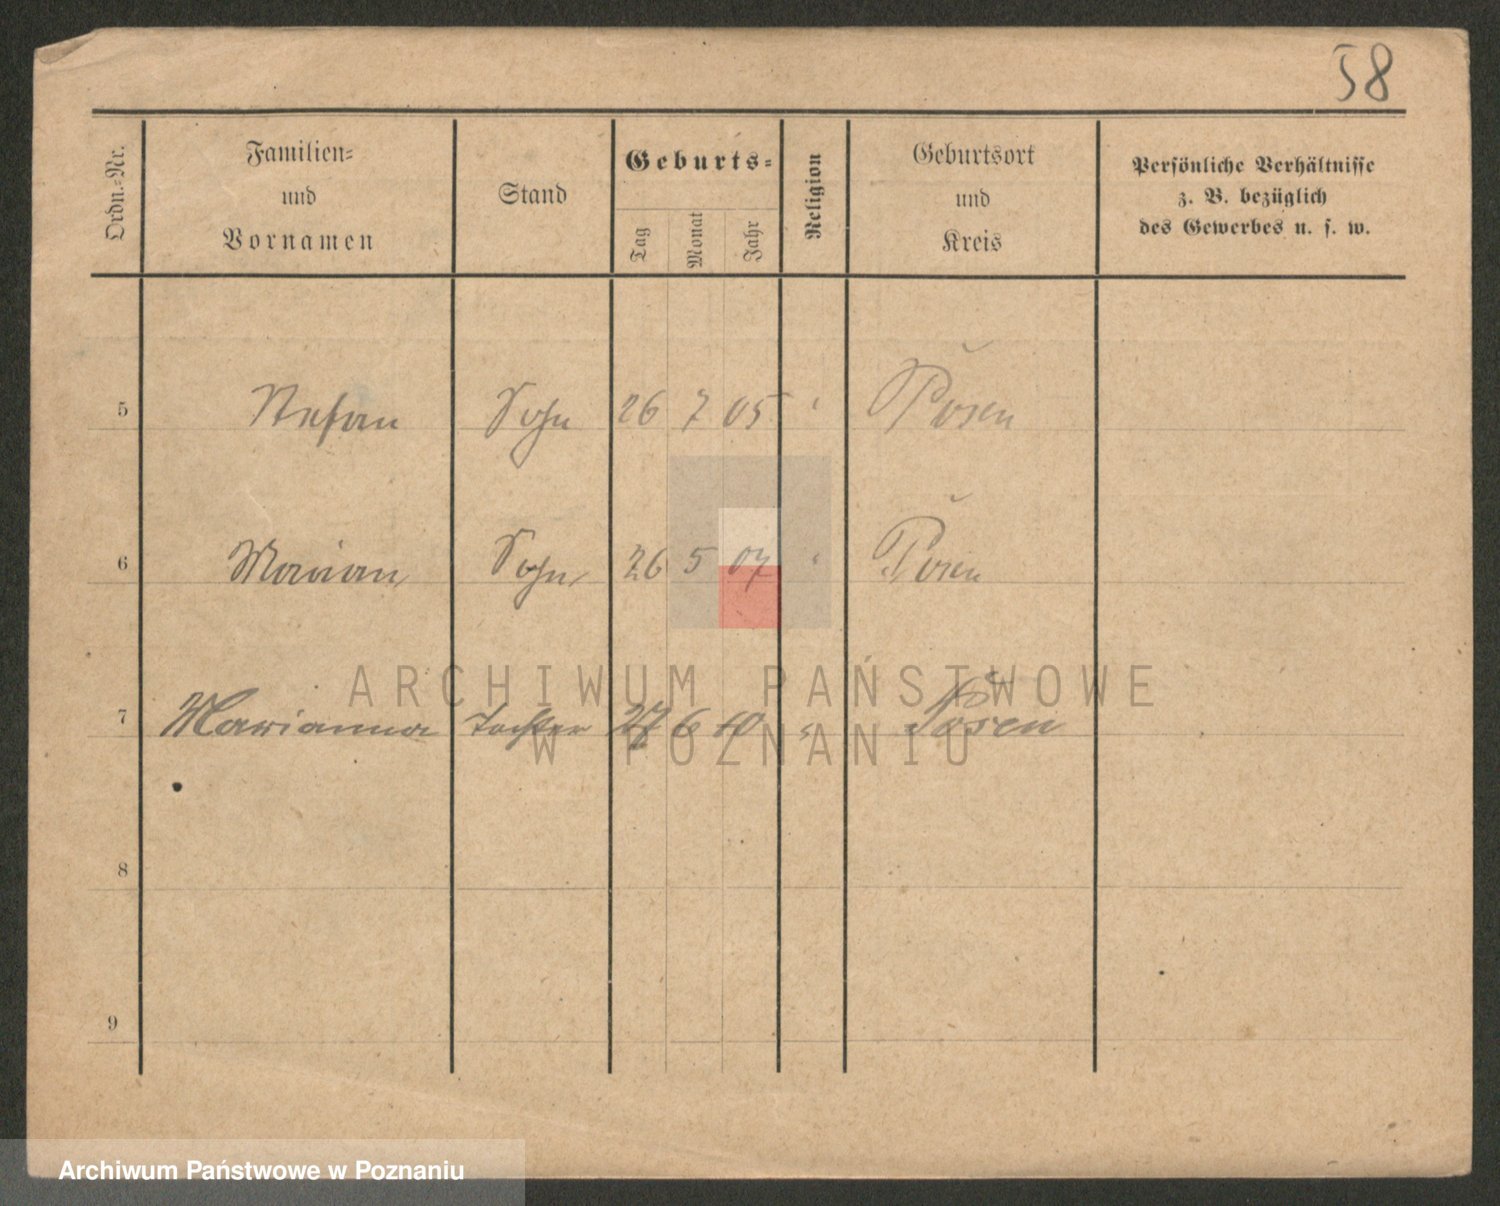 58
Ordn.-Nr.
Familien-
und
Vornamen
Stand
Geburts-
Tag
Monat
Jahr
Religion
Geburtsort
und
Kreis
Persönliche Verhältnisse
z. B. bezüglich
des Gewerbes u. s. w.
5 Stefan Sohn 26 7 05 " Posen
6 Marian Sohn 26 5 07 " Posen
7 Marianna Tochter 27 6 10 " Posen
8
9
ARCHIWUM PAŃSTWOWE
W POZNANIU
Archiwum Państwowe w Poznaniu